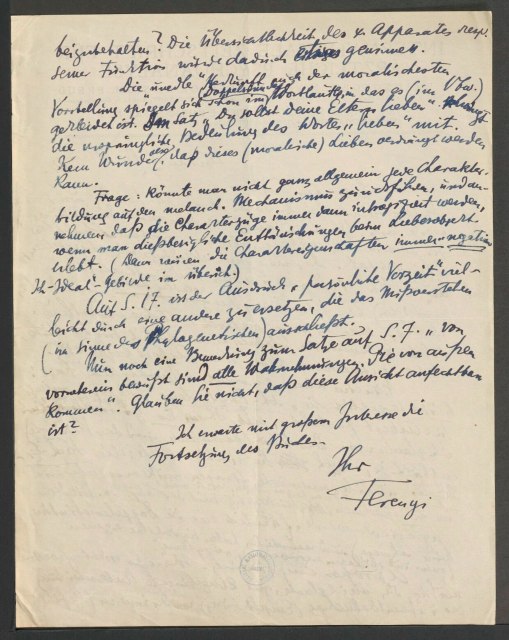 beizubehalten? Die Übersichtlichkeit des ψ. Apparates resp.
seiner Funktion würde dadurch gewinnen.
Die unedle der moralischesten
Vorstellung spiegelt sich schon im Wortlaut, in das es (im Vbw.)
gekleidet ist. Im Satz „Du sollst deine Eltern lieben" schwingt
die ursprüngliche Bedeutung des Wortes „lieben" mit.
Kein Wunder also, daß dieses (moralische) Lieben verdrängt werden
kann.
Frage: Könnte man nicht ganz allgemein jede Charakter-
bildung auf den melanch. Mechanismus zurückführen, und an-
nehmen, daß die Charakterzüge immer dann introjiziert werden,
wenn man diesbezügliche Enttäuschungen beim Liebesobject
erlebt. (Dann wären die Charaktereigenschaften immer negative
Ich-Ideal"-Gebilde im übrich.)
Auf S. 17. ist der Ausdruck „persönliche Vorzeit" viel-
leicht durch eine andere zu ersetzen, die das Mißverstehen
(im Sinne des Phylogenetischen) ausschließt.
Nun noch eine Bemerkung zum Satze auf S. 7. „von
vornherein bewußt sind alle Wahrnehmungen, die von außen
kommen". Glauben Sie nicht, daß diese Ansicht anfechtbar
ist?
Ich erwarte mit großem Interesse die
Fortsetzung des Buches.
Ihr
Ferenczi